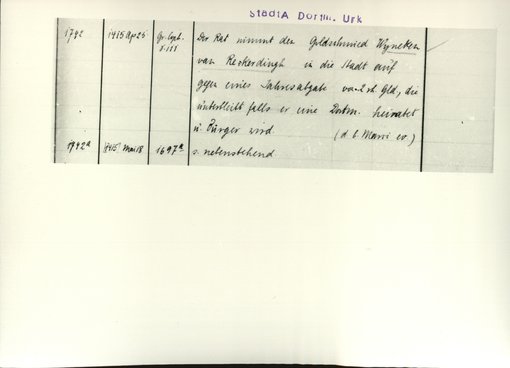 StadtA Dortm. Urk
1792 1415 Ap 25 Gr. Copb. S. 111 Der Rat nimmt den Goldschmied Wyneken
van Reckerdingh in die Stadt auf
gegen eine Jahresabgabe von 2 rh. Gld, die
unterbleibt falls er eine Dortm. heiratet
u Bürger wird. (d. b. Marci ev)
1792a 1415 Mai 18 1697a s. nebenstehend